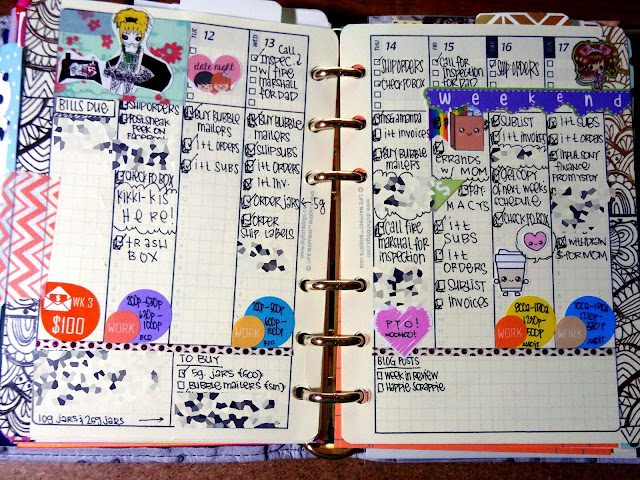 BILLS DUE
WK 3
$100
SHIP ORDERS
POSTSNEAK
PEEK ON
CHECK PO BOX
KIKKI-K IS
HERE!
TRASH
BOX
WORK
TUE
12
date night
BUY BUBBLE
MAILERS
i+t ORDERS
i+t SUBS
WED
13
CALL
INSPEC.
W/ FIRE
MARSHALL
FOR DAD
BUY BUBBLE
MAILERS
SHIP SUBS
i+t ORDERS
i+t INV.
ORDER JARS ← 5g
ORDER
SHIP LABELS
WORK
10g JARS & 20g JARS →
TO BUY
5g JARS (600)
BUBBLE MAILERS (sm)
THU
14
SHIP ORDERS
CHECK PO BOX
i+t invoices
BUY BUBBLE
MAILERS
CALL FIRE
MARSHALL FOR
INSPECTION
PTO!
WOOHOO!
FRI
15
CALL FOR
INSPECTION
FOR DAD
ERRANDS
W/ MOM
PAY
MACYS
i+t
SUBS
i+t
ORDERS
SUBLIST
invoices
Weekend
16
SHIP ORDERS
SUBLIST
i+t invoices
DEL COPY
of next weeks
schedule
CHECK PO BOX
WORK
17
i+t SUBS
i+t ORDERS
FINANCE
WITHDRAW
$ FOR MOM
WORK
BLOG POSTS
WEEK IN REVIEW
HAPPIE SCRAPPIE